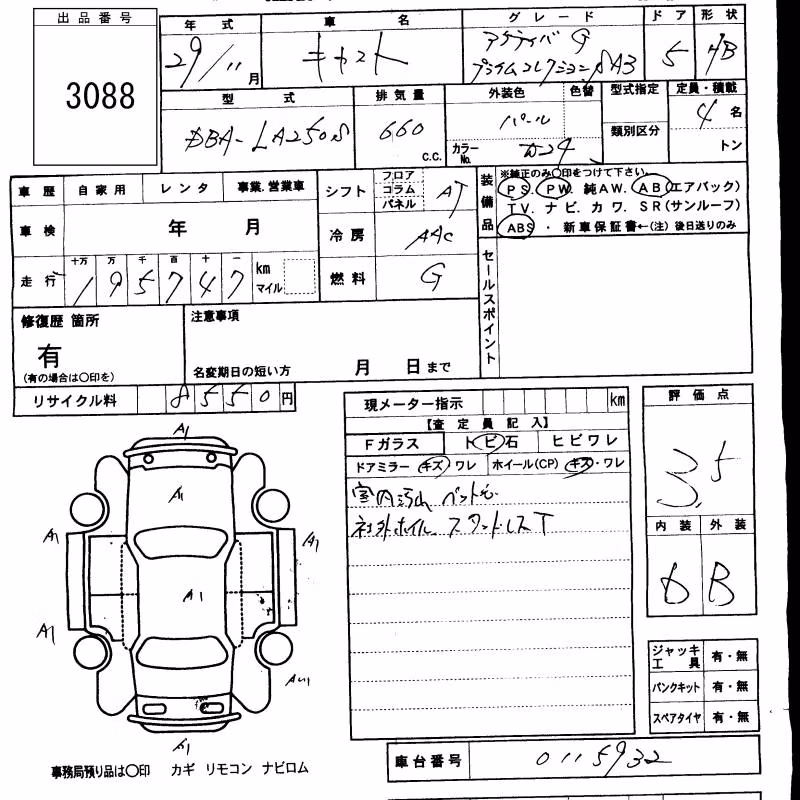 出品番号
3088
年式 車名 グレード ドア 形状
29/11月 キャスト アクティバ G プライムコレクション SA3 5 HB
型式 排気量 外装色 色替 型式指定 定員・積載
DBA-LA250S 660 C.C. パール カラーNo. W24 類別区分 4名 トン
車歴 自家用 レンタ 事業.営業車 シフト フロア コラム パネル AT
車検 年 月 冷房 AAC
走行 十万 万 千 百 十 一 km マイル 燃料 G
195747
装備品
※純正のみ〇印をつけて下さい。
PS. PW. 純AW. AB(エアバック)
TV. ナビ. カワ. SR(サンルーフ)
ABS ・ 新車保証書←(注) 後日送りのみ
セールスポイント
修復歴 箇所 注意事項
有
(有の場合は〇印を) 名変期日の短い方 月 日まで
リサイクル料 8550円
現メーター指示 km
【査定員記入】
Fガラス トビ石 ヒビワレ
ドアミラー キズ ワレ ホイール(CP) キズ・ワレ
室内汚れ ペット毛
社外ホイル スタッドレスT
評価点
3.5
内装 外装
D B
A1
A1
A1 A1
A1
A1
A1
ジャッキ工具 有・無
パンクキット 有・無
スペアタイヤ 有・無
車台番号 0115932
事務局預り品は〇印 カギ リモコン ナビロム